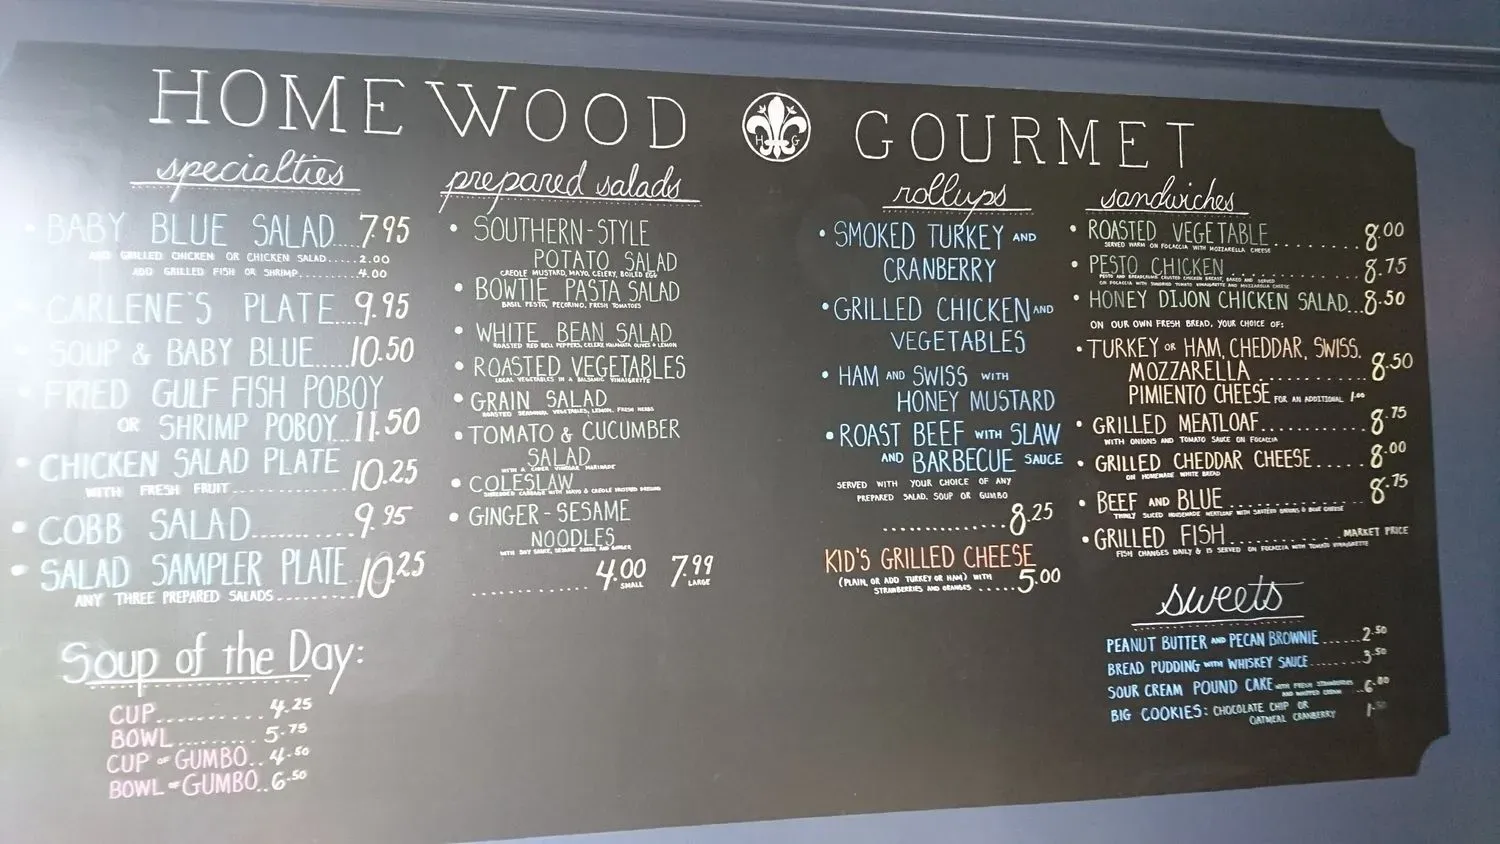 HOMEWOOD GOURMET
H G
specialties
• BABY BLUE SALAD.....7.95
ADD GRILLED CHICKEN OR CHICKEN SALAD.....2.00
ADD GRILLED FISH OR SHRIMP.........4.00
• CARLENE'S PLATE....9.95
• SOUP & BABY BLUE....10.50
• FRIED GULF FISH POBOY
OR SHRIMP POBOY...11.50
• CHICKEN SALAD PLATE
WITH FRESH FRUIT..............10.25
• COBB SALAD...........9.95
• SALAD SAMPLER PLATE 10.25
ANY THREE PREPARED SALADS..........
Soup of the Day:
CUP..........4.25
BOWL.........5.75
CUP OF GUMBO..4.50
BOWL OF GUMBO..6.50
prepared salads
• SOUTHERN-STYLE
POTATO SALAD
CREOLE MUSTARD, MAYO, CELERY, BOILED EGG
• BOWTIE PASTA SALAD
BASIL PESTO, PECORINO, FRESH TOMATOES
• WHITE BEAN SALAD
ROASTED RED BELL PEPPERS, CELERY, KALAMATA OLIVES & LEMON
• ROASTED VEGETABLES
LOCAL VEGETABLES IN A BALSAMIC VINAIGRETTE
• GRAIN SALAD
ROASTED SEASONAL VEGETABLES, LEMON, FRESH HERBS
• TOMATO & CUCUMBER
SALAD
WITH A CIDER VINEGAR MARINADE
• COLESLAW
SHREDDED CABBAGE WITH MAYO & CREOLE MUSTARD DRESSING
• GINGER-SESAME
NOODLES
WITH SOY SAUCE, SESAME SEEDS AND GINGER
..............4.00 7.99
SMALL LARGE
rollups
• SMOKED TURKEY AND
CRANBERRY
• GRILLED CHICKEN AND
VEGETABLES
• HAM AND SWISS WITH
HONEY MUSTARD
• ROAST BEEF WITH SLAW
AND BARBECUE SAUCE
SERVED WITH YOUR CHOICE OF ANY
PREPARED SALAD, SOUP OR GUMBO
..............8.25
KID'S GRILLED CHEESE
(PLAIN, OR ADD TURKEY OR HAM) WITH
STRAWBERRIES AND ORANGES.....5.00
sandwiches
• ROASTED VEGETABLE............8.00
SERVED WARM ON FOCACCIA WITH MOZZARELLA CHEESE
• PESTO CHICKEN................8.75
PESTO AND BREADCRUMB CRUSTED CHICKEN BREAST, BAKED AND SERVED
ON FOCACCIA WITH SUNDRIED TOMATO VINAIGRETTE AND MOZZARELLA CHEESE
• HONEY DIJON CHICKEN SALAD...8.50
ON OUR OWN FRESH BREAD, YOUR CHOICE OF:
• TURKEY OR HAM, CHEDDAR, SWISS,
MOZZARELLA............8.50
PIMIENTO CHEESE FOR AN ADDITIONAL 1.00
• GRILLED MEATLOAF...........8.75
WITH ONIONS AND TOMATO SAUCE ON FOCACCIA
• GRILLED CHEDDAR CHEESE......8.00
ON HOMEMADE WHITE BREAD
• BEEF AND BLUE...............8.75
THINLY SLICED HOUSEMADE MEATLOAF WITH SAUTÉED ONIONS & BLUE CHEESE
• GRILLED FISH..............MARKET PRICE
FISH CHANGES DAILY & IS SERVED ON FOCACCIA WITH TOMATO VINAIGRETTE
sweets
PEANUT BUTTER AND PECAN BROWNIE......2.50
BREAD PUDDING WITH WHISKEY SAUCE........3.50
SOUR CREAM POUND CAKE WITH FRESH STRAWBERRIES AND WHIPPED CREAM...6.00
BIG COOKIES: CHOCOLATE CHIP OR
OATMEAL CRANBERRY 1.50